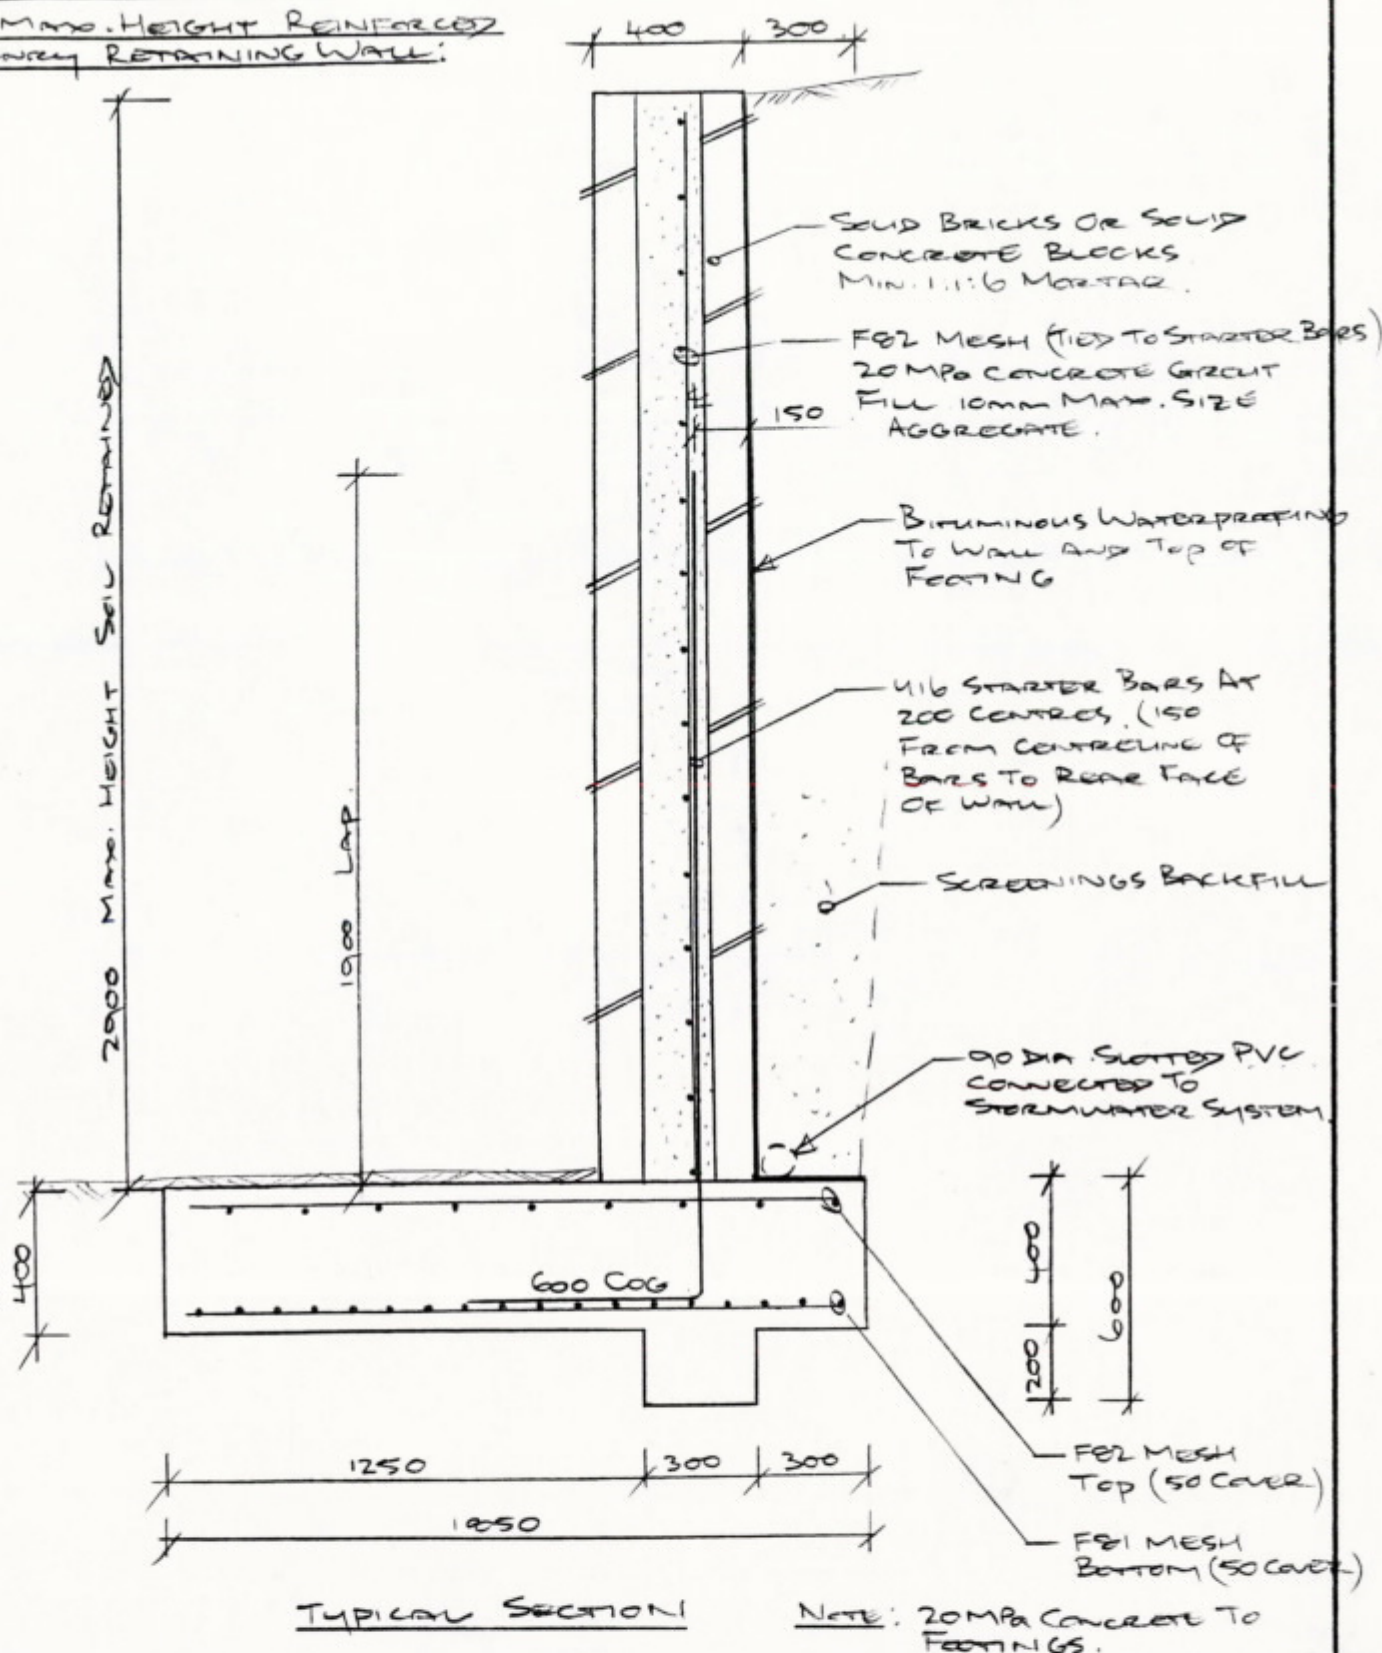 MAX. HEIGHT REINFORCED
RETAINING WALL:
400
300
SOLID BRICKS OR SOLID
CONCRETE BLOCKS
MIN. 1:1:6 MORTAR.
F82 MESH (TIED TO STARTER BARS)
20 MPa CONCRETE GROUT
FILL 10mm MAX. SIZE
AGGREGATE.
150
2900 MAX. HEIGHT SOIL RETAINED
1900 LAP.
BITUMINOUS WATERPROOFING
TO WALL AND TOP OF
FOOTING
Y16 STARTER BARS AT
200 CENTRES. (150
FROM CENTRELINE OF
BARS TO REAR FACE
OF WALL)
SCREENINGS BACKFILL
90 DIA SLOTTED PVC
CONNECTED TO
STORMWATER SYSTEM.
400
600 COG
400
200
600
1250
300
300
1850
F82 MESH
TOP (50 COVER)
F81 MESH
BOTTOM (50 COVER)
TYPICAL SECTION
NOTE: 20 MPa CONCRETE TO
FOOTINGS.